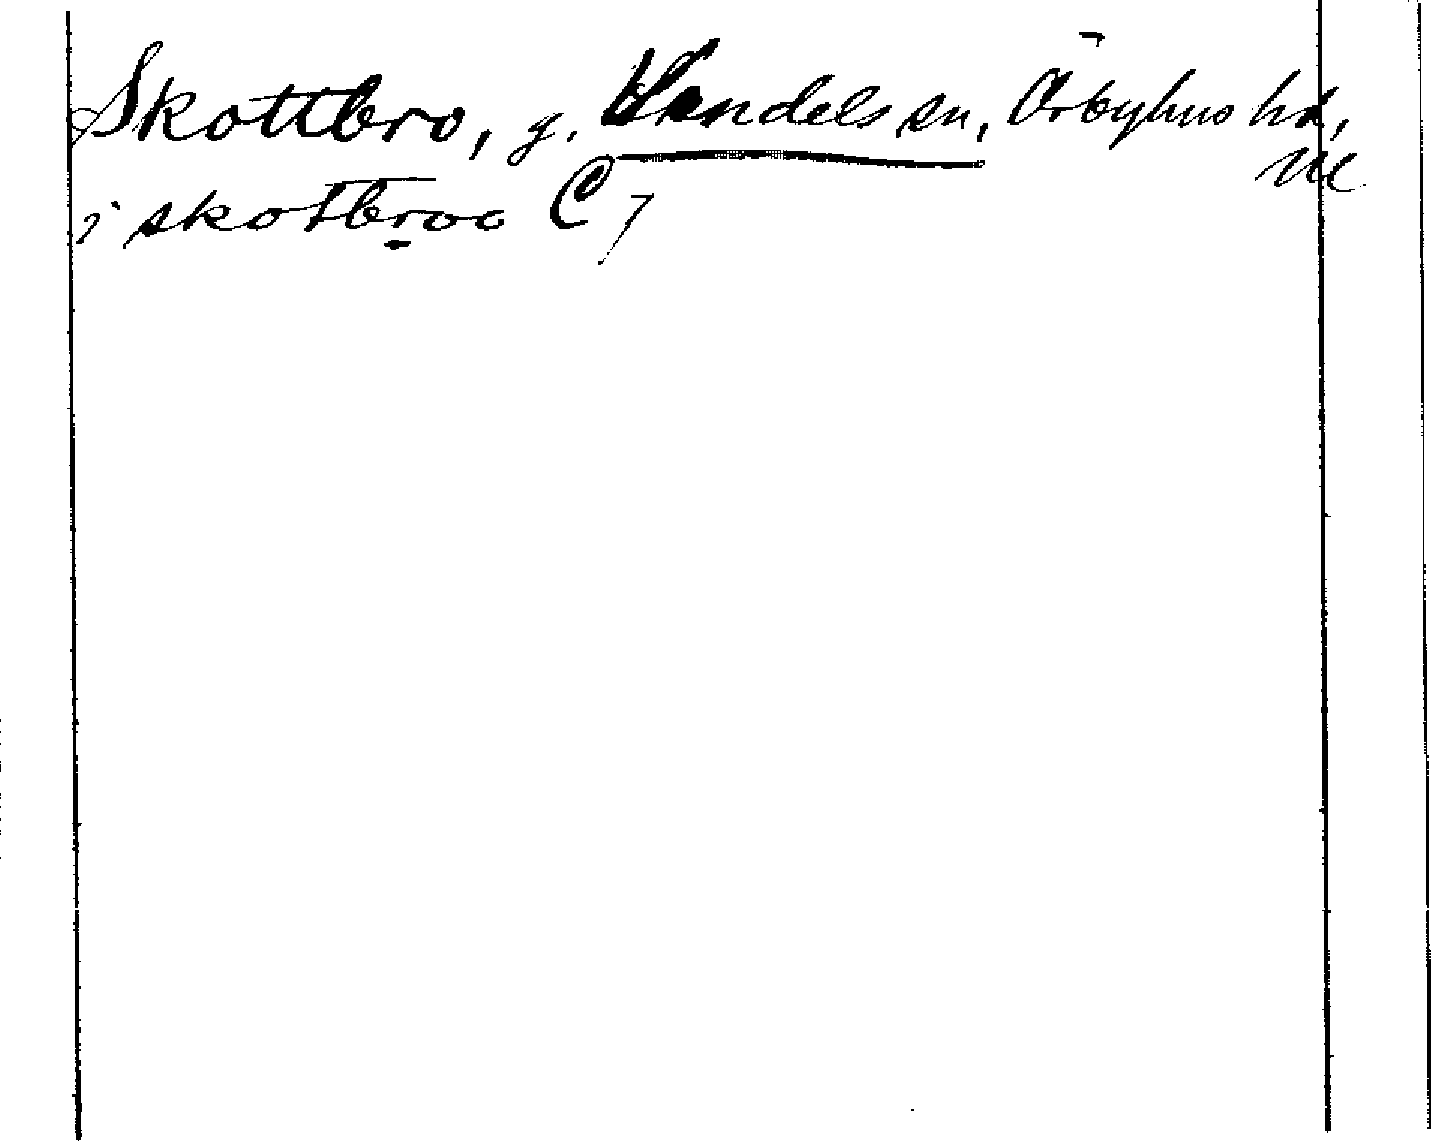 Skottbro, g. Vendels sn, Örbyhus hd,
i skotbroo C 7